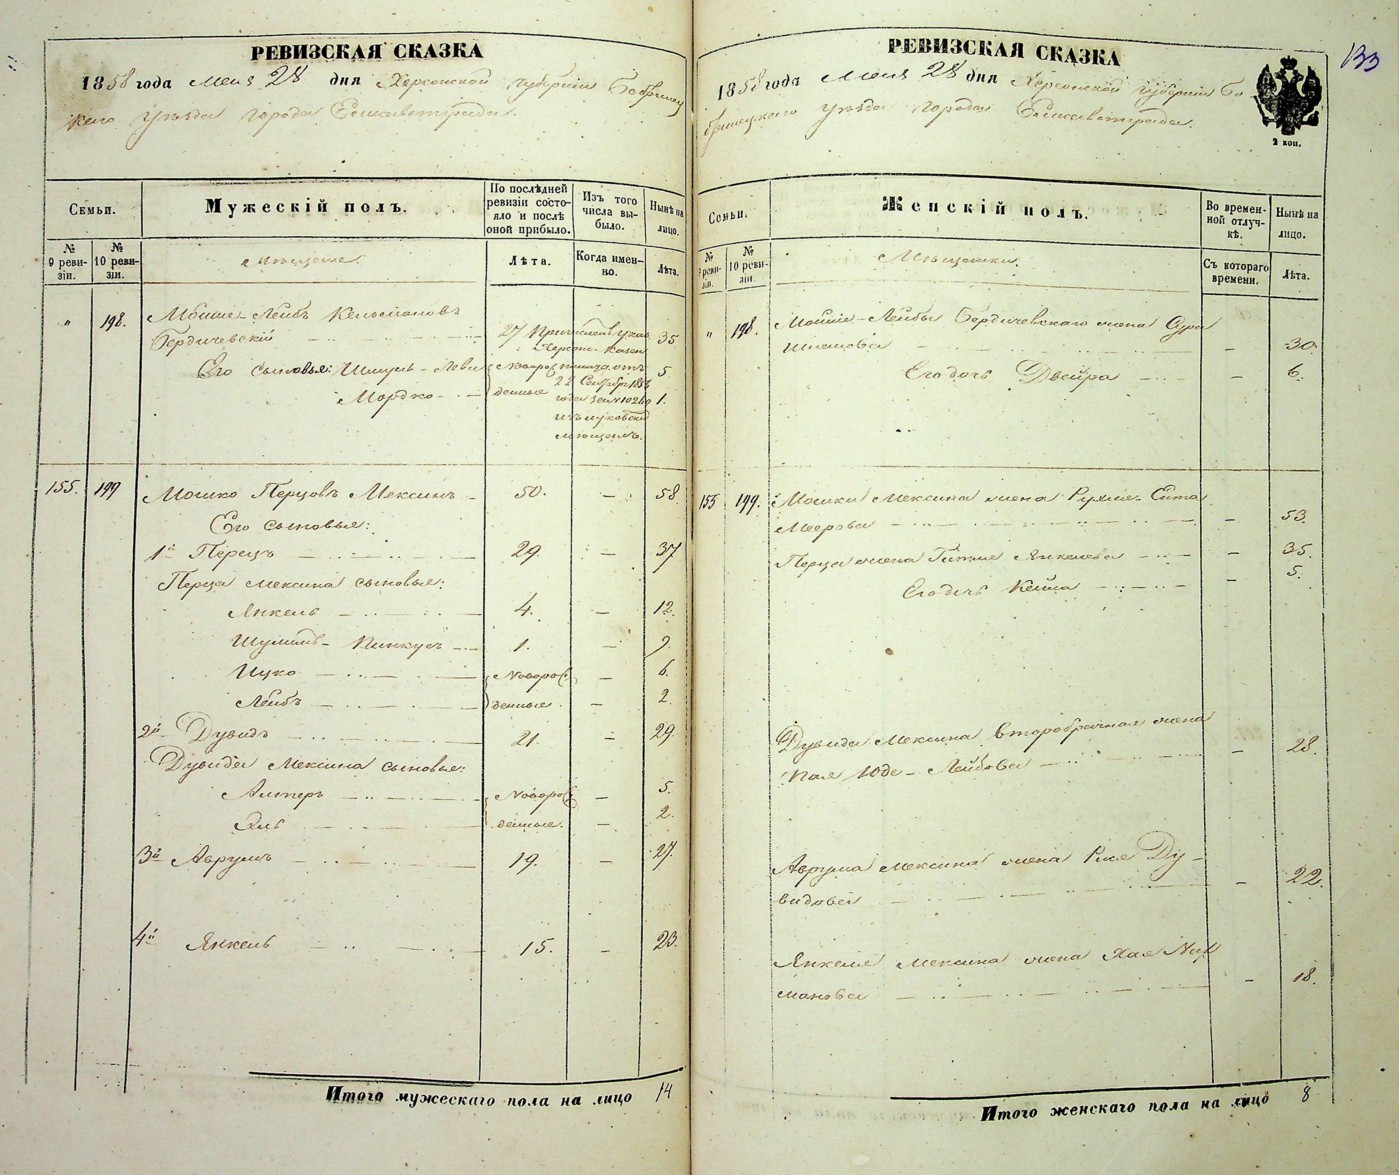 РЕВИЗСКАЯ СКАЗКА
1858 года Мая 28 дня Херсонской губернии Бобринец
каго уѣзда города Елисаветграда.
Семьи.
Мужескій полъ.
По послѣдней ревизіи состояло и послѣ оной прибыло.
Изъ того числа выбыло.
Нынѣ на лицо.
№ 9 ревизіи.
№ 10 ревизіи.
Мѣщане.
Лѣта.
Когда именно.
Лѣта.
" 198. Мошие-Лейбъ Кельмановъ
Бердичевскій 27 Причисленъ указ. 35
Херсон. казен.
Его сыновья: Шмуль-Леви новорож палаты отъ 5
22 Сентября
Мордко денные года за № 10260 1.
изъ
мѣщанъ.
155. 199 Мошко Перцовъ Мексинъ 50. 58
Его сыновья:
1й Перецъ 29. 37
Перца Мексина сыновья:
Янкель 4. 12.
Шулимъ-Пинкусъ 1. 9.
Ицко новорож 6.
Лейбъ денные. 2.
2й Дувидъ 21. 29.
Дувида Мексина сыновья:
Алтеръ новорож 5.
Эль денные. 2.
3й Аврумъ 19. 27.
4й Янкель 15. 23.
Итого мужескаго пола на лицо 14
РЕВИЗСКАЯ СКАЗКА
133
1858 года Мая 28 дня Херсонской губернии Бо
бринецкаго уѣзда города Елисаветграда.
2 коп.
Семьи.
Женскій полъ.
Во временной отлучкѣ.
Нынѣ на лицо.
№ 9 ревизіи.
№ 10 ревизіи.
Мѣщанки.
Съ котораго времени.
Лѣта.
" 198. Мошие-Лейбы Бердичевскаго жена Сура
Шлемова 30.
Его дочь Двейра 6.
155 199. Мошки Мексина жена Рухля-Сита
Меерова 53.
Перца жена Гитля Янкелева 35.
Его дочь Кейла 5.
Дувида Мексина второбрачная жена
Пая Юде-Лейбова 28.
Аврума Мексина жена Рися Ду-
видова 22.
Янкеля Мексина жена Хая Нах
манова 18.
Итого женскаго пола на лицо 8